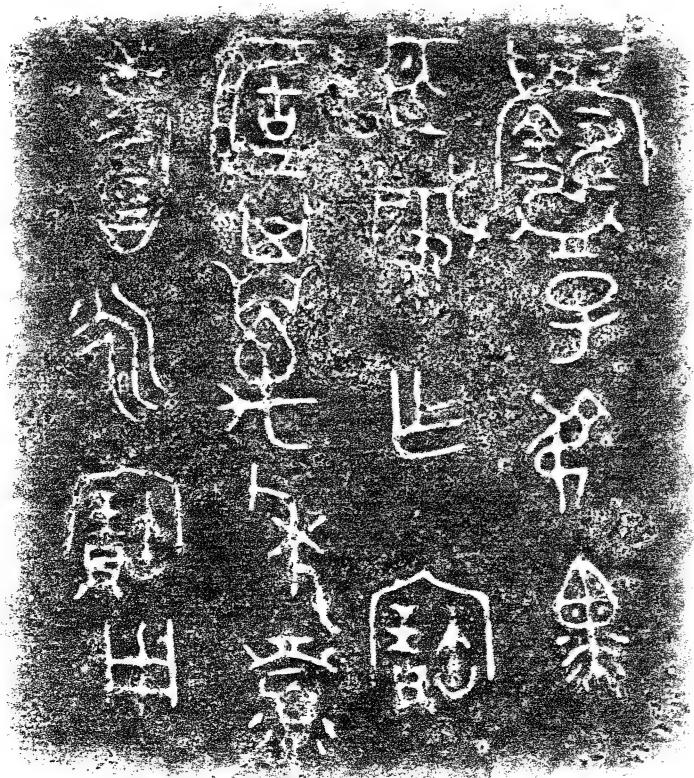 鑄子弔黑
𦣞肇乍寶
𠤳其萬年
眉壽永寶用